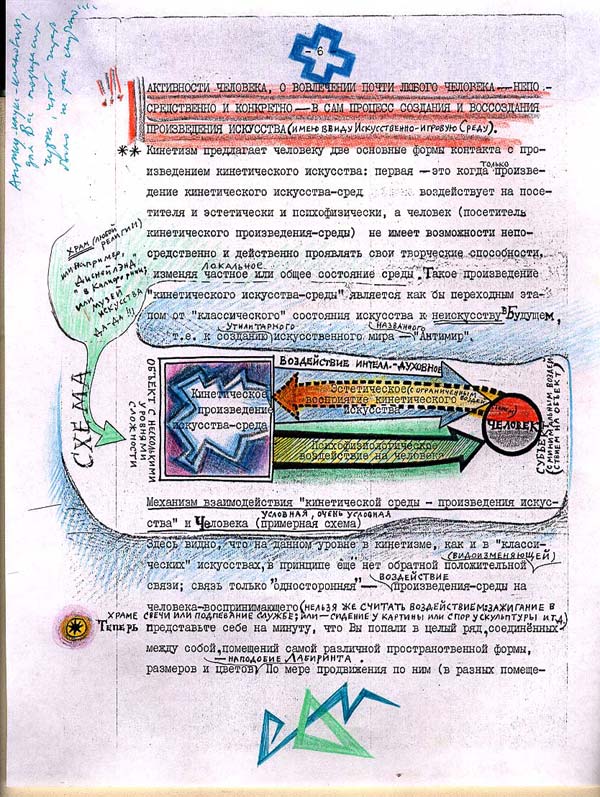 - 6
АКТИВНОСТИ ЧЕЛОВЕКА, О ВОВЛЕЧЕНИИ ПОЧТИ ЛЮБОГО ЧЕЛОВЕКА — НЕПО-
СРЕДСТВЕННО И КОНКРЕТНО — В САМ ПРОЦЕСС СОЗДАНИЯ И ВОССОЗДАНИЯ
ПРОИЗВЕДЕНИЯ ИСКУССТВА (ИМЕЮ ВВИДУ ИСКУССТВЕННО-ИГРОВУЮ СРЕДУ).
** Кинетизм предлагает человеку две основные формы контакта с про-
изведением кинетического искусства: первая — это когда только произве-
дение кинетического искусства-сред воздействует на посе-
тителя и эстетически и психофизически, а человек (посетитель
кинетического произведения-среды) не имеет возможности непо-
средственно и действенно проявлять свои творческие способности,
изменяя частное локальное или общее состояние среды. Такое произведение
"кинетического искусства-среды" является как бы переходным эта-
пом от "классического" состояния искусства к неискусству в Будущем,
т.е. к созданию утилитарного искусственного мира — названного "Антимир".
ХРАМ (ЛЮБОЙ
РЕЛИГИИ)
ИЛИ НАПРИМЕР,
ДИСНЕЙЛЭНД
В КАЛИФОРНИИ,
ИЛИ МУЗЕЙ
ИСКУССТВА
ДА-ДА!!!
СХЕМА
ОБЪЕКТ С НЕСКОЛЬКИМИ
УРОВНЯМИ
СЛОЖНОСТИ
Кинетическое
произведение
искусства-среда
ВОЗДЕЙСТВИЕ ИНТЕЛЛ.-ДУХОВНОЕ
Эстетическое (С ОГРАНИЧЕННЫМ
восприятие кинетического
искусства
Психофизиологическое
воздействие на человека
ЧЕЛОВЕК
СУБЪЕКТ
(С МИНИМАЛЬНЫМ ВОЗДЕЙ-
СТВИЕМ НА ОБЪЕКТ)
Механизм взаимодействия "кинетической среды - произведения искус-
ства" и Человека (примерная схема)
УСЛОВНАЯ, ОЧЕНЬ УСЛОВНАЯ
Здесь видно, что на данном уровне в кинетизме, как и в "класси-
ческих" искусствах, в принципе ещё нет обратной положительной (ВИДОИЗМЕНЯЮЩЕЙ)
связи; связь только "односторонняя" — ВОЗДЕЙСТВИЕ произведения-среды на
человека-воспринимающего (НЕЛЬЗЯ ЖЕ СЧИТАТЬ ВОЗДЕЙСТВИЕМ: ЗАЖИГАНИЕ В
ХРАМЕ СВЕЧИ ИЛИ ПОДПЕВАНИЕ СЛУЖБЕ; ИЛИ — СИДЕНИЕ У КАРТИНЫ ИЛИ СПОР У СКУЛЬПТУРЫ И Т.Д.)
Теперь представьте себе на минуту, что Вы попали в целый ряд, соединённых
между собой, помещений самой различной пространотвенной формы,
размеров и цветов — НАПОДОБИЕ ЛАБИРИНТА. По мере продвижения по ним (в разных помеще-